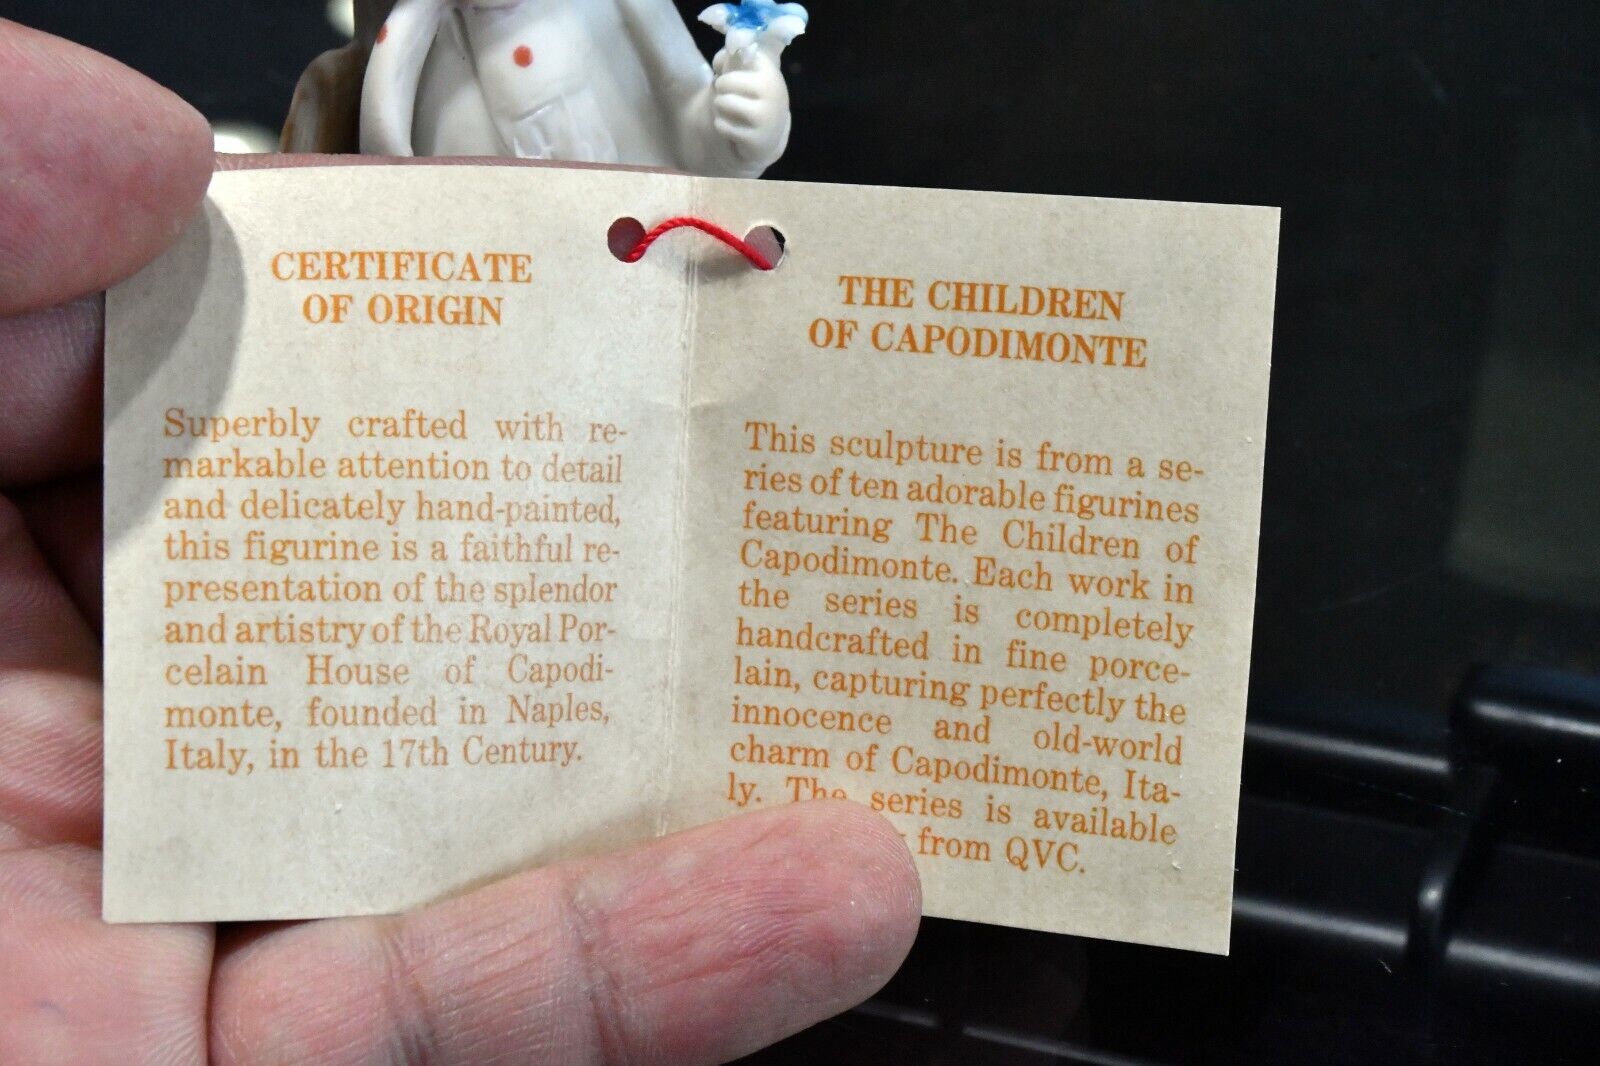 CERTIFICATE
OF ORIGIN
Superbly crafted with re-
markable attention to detail
and delicately hand-painted,
this figurine is a faithful re-
presentation of the splendor
and artistry of the Royal Por-
celain House of Capodi-
monte, founded in Naples,
Italy, in the 17th Century.
THE CHILDREN
OF CAPODIMONTE
This sculpture is from a se-
ries of ten adorable figurines
featuring The Children of
Capodimonte. Each work in
the series is completely
handcrafted in fine porce-
lain, capturing perfectly the
innocence and old-world
charm of Capodimonte, Ita-
ly. The series is available
from QVC.